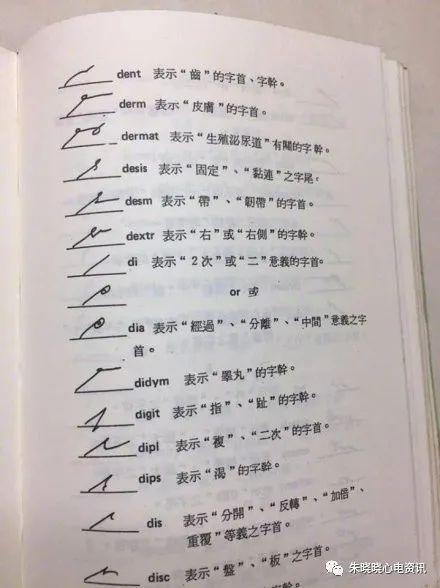 dent 表示“齒”的字首、字幹。
derm 表示“皮膚”的字首。
dermat 表示“生殖泌尿道”有關的字幹。
desis 表示“固定”、“黏連”之字尾。
desm 表示“帶”、“韌帶”的字首。
dextr 表示“右”或“右側”的字幹。
di 表示“2次”或“二”意義的字首。
or 或
dia 表示“經過”、“分離”、“中間”意義之字
首。
didym 表示“睪丸”的字幹。
digit 表示“指”、“趾”的字幹。
dipl 表示“複”、“二次”的字首。
dips 表示“渴”的字幹。
dis 表示“分開”、“反轉”、“加倍”、
重覆”等義之字首。
disc 表示“盤”、“板”之字首。
朱晓晓心电资讯